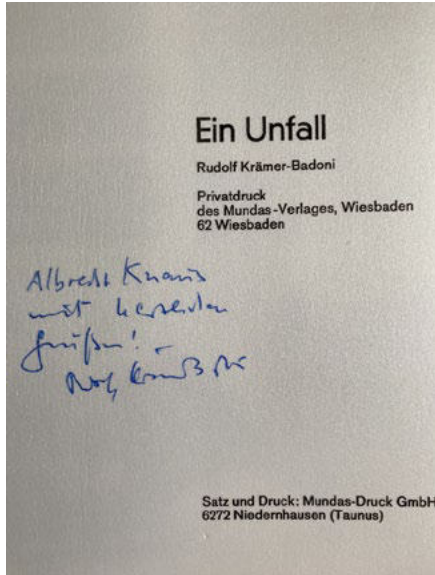 Ein Unfall
Rudolf Krämer-Badoni
Privatdruck
des Mundas-Verlages, Wiesbaden
62 Wiesbaden
Albrecht Knaus
mit herzlichen
Grüßen! –
Satz und Druck: Mundas-Druck GmbH
6272 Niedernhausen (Taunus)